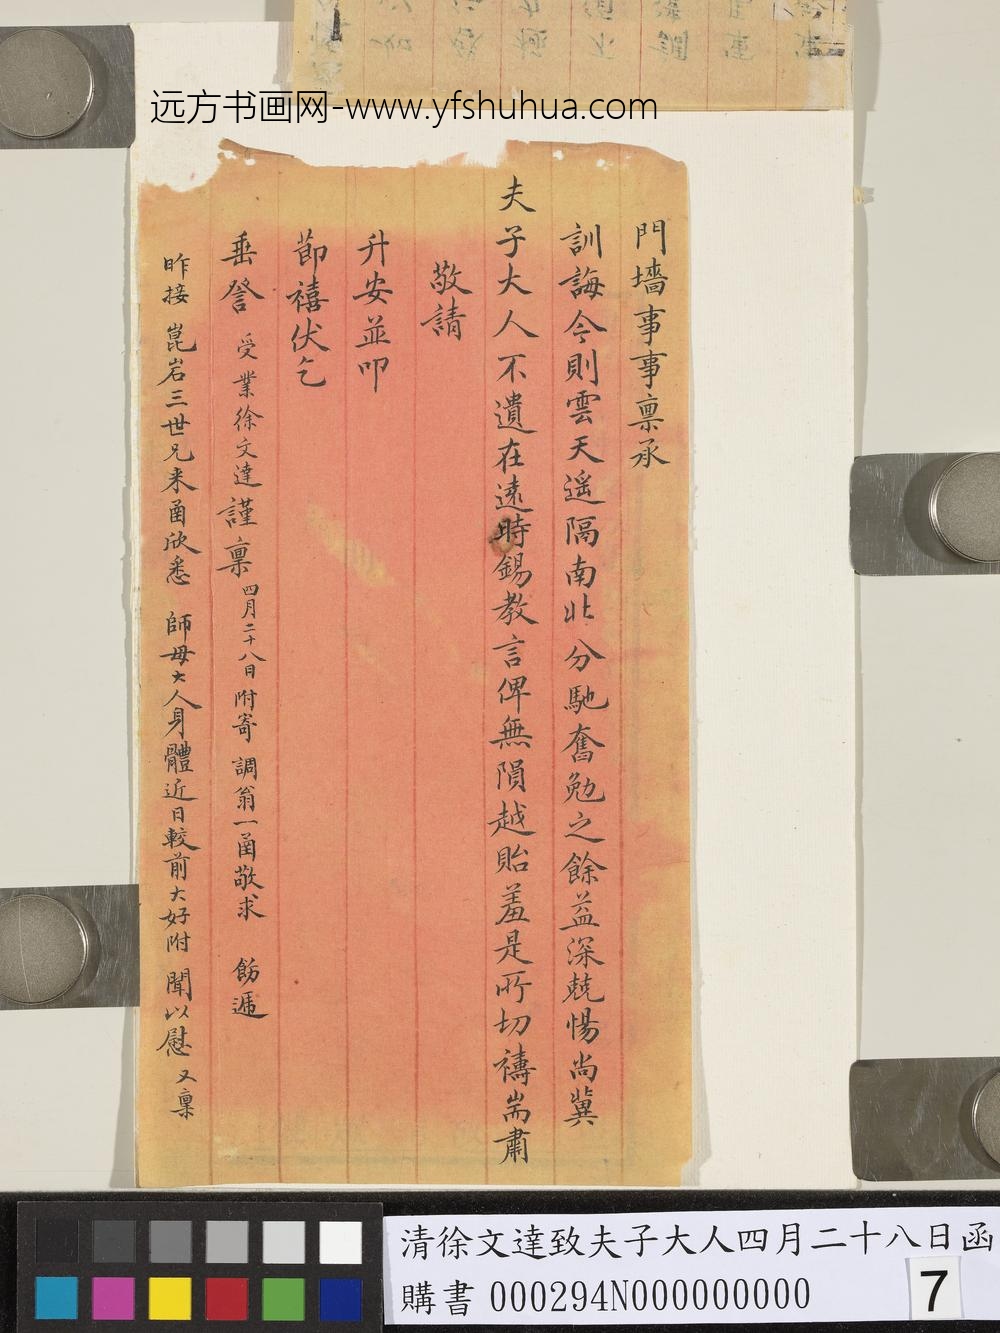 远方书画网-www.yfshuhua.com
門墻事事禀承
訓誨今則雲天遥隔南北分馳奮勉之餘益深兢惕尚冀
夫子大人不遺在遠時錫教言俾無隕越貽羞是所切禱耑肅
敬請
升安並叩
節禧伏乞
垂詧 受業徐文達謹禀 四月二十八日 附寄 調翁一函敬求 飭遞
昨接 崑岩三世兄来函欣悉 師母大人身體近日較前大好附 聞以慰 又禀
清徐文達致夫子大人四月二十八日函
購書 000294N000000000
7